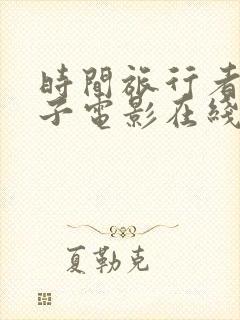 時間旅行者
子電影在綫
夏勒克